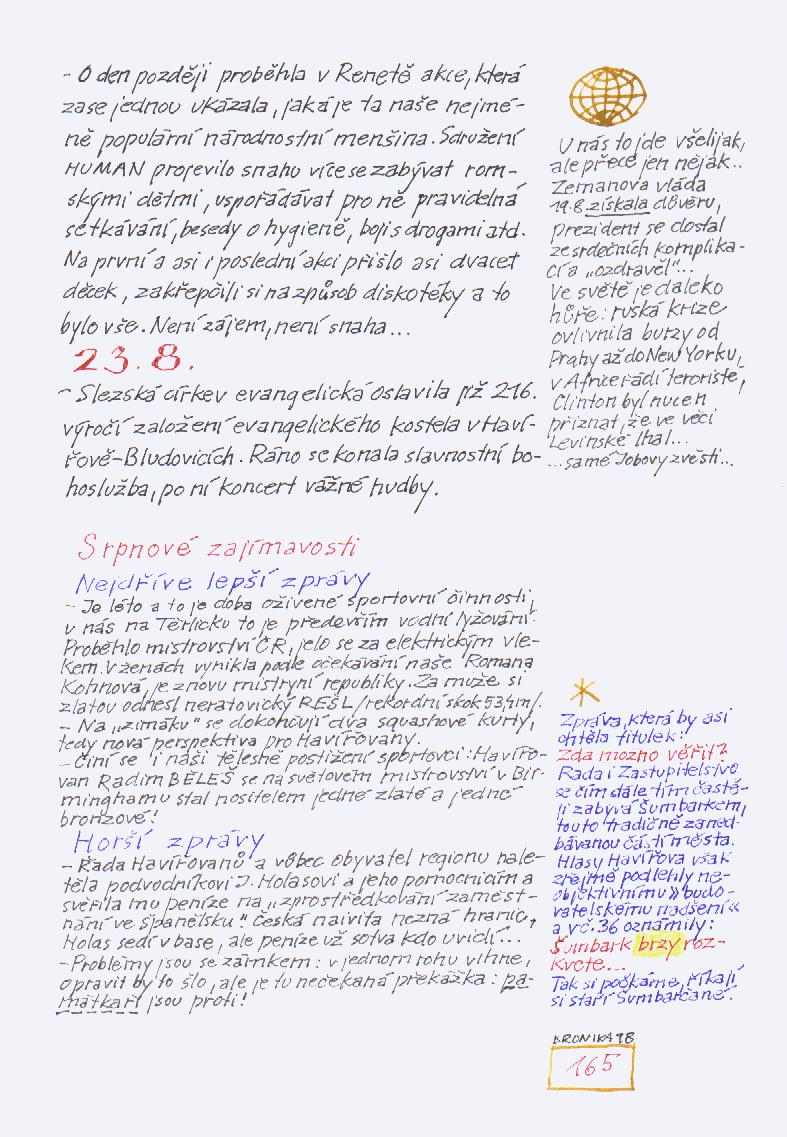 - O den později proběhla v Renetě akce, která
zase jednou ukázala, jaká je ta naše nejmé-
ně populární národnostní menšina. Sdružení
HUMAN projevilo snahu více se zabývat rom-
skými dětmi, uspořádávat pro ně pravidelná
setkávání, besedy o hygieně, boji s drogami atd.
Na první a asi i poslední akci přišlo asi dvacet
děcek, zakřepčili si na způsob diskotéky a to
bylo vše. Není zájem, není snaha...
23.8.
- Slezská církev evangelická oslavila již 216.
výročí založení evangelického kostela v Haví-
řově-Bludovicích. Ráno se konala slavnostní bo-
hoslužba, po ní koncert vážné hudby.
Srpnové zajímavosti
Nejdříve lepší zprávy
- Je léto a to je doba oživené sportovní činnosti,
u nás na Těrlicku to je především vodní lyžování.
Proběhlo mistrovství ČR, jelo se za elektrickým vle-
kem. V ženách vynikla podle očekávání naše Romana
Kohnová, je znovu mistryní republiky. Za muže si
zlatou odnesl neratovický REŠL /rekordní skok 53,4m/.
- Na „zimáku" se dokončují dva squashové kurty,
tedy nová perspektiva pro Havířovany.
- Činí se i naši tělesně postižení sportovci: Havířo-
van Radim BĚLEŠ se na světovém mistrovství v Bir-
minghamu stal nositelem jedné zlaté a jedné
bronzové!
Horší zprávy
- Řada Havířovanů a vůbec obyvatel regionu nale-
těla podvodníkovi J. Holasovi a jeho pomocnicím a
svěřila mu peníze na „zprostředkování zaměst-
nání ve Španělsku". Česká naivita nezná hranic,
Holas sedí v base, ale peníze už sotva kdo uvidí...
- Problémy jsou se zámkem: v jednom rohu vlhne,
opravit by to šlo, ale je tu nečekaná překážka: pa-
mátkáři jsou proti!
U nás to jde všelijak,
ale přece jen nějak..
Zemanova vláda
19.8 získala důvěru,
prezident se dostal
ze srdečních komplika-
cí a „ozdravěl"...
Ve světě je daleko
hůře: ruská krize
ovlivnila burzy od
Prahy až do New Yorku,
v Africe řádí teroristé,
Clinton byl nucen
přiznat, že ve věci
Levinské lhal...
...samé Jobovy zvěsti...
Zpráva, která by asi
chtěla titulek:
Zda možno věřit?
Rada i Zastupitelstvo
se čím dále tím častě-
ji zabývá Šumbarkem,
touto tradičně zaned-
bávanou částí města.
Hlasy Havířova však
zřejmě podlehly ne-
objektivnímu »budo-
vatelskému nadšení«
a v č. 36 oznámily:
Šumbark brzy roz-
kvete...
Tak si počkáme, říkají
si staří Šumbarčané.
KRONIKA 98
165